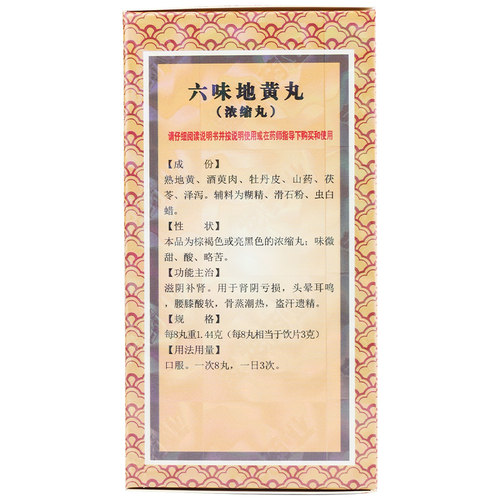 六味地黄丸
（浓缩丸）
请仔细阅读说明书并按说明使用或在药师指导下购买和使用
【成　份】
熟地黄、酒萸肉、牡丹皮、山药、茯
苓、泽泻。辅料为糊精、滑石粉、虫白
蜡。
【性　状】
本品为棕褐色或亮黑色的浓缩丸；味微
甜、酸、略苦。
【功能主治】
滋阴补肾。用于肾阴亏损，头晕耳鸣
，腰膝酸软，骨蒸潮热，盗汗遗精。
【规　格】
每8丸重1.44克（每8丸相当于饮片3克）
【用法用量】
口服。一次8丸，一日3次。